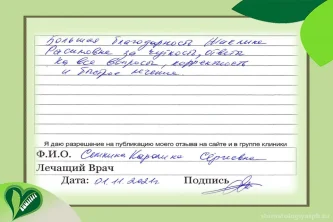 Большая благодарность
за чуткость, ответы
на все вопросы, корректность
и быстрое лечение
Я даю разрешение на публикацию моего отзыва на сайте и в группе клиники
Ф.И.О. Каролина Сергеевна
Лечащий Врач
Дата: 01.11.2021г Подпись